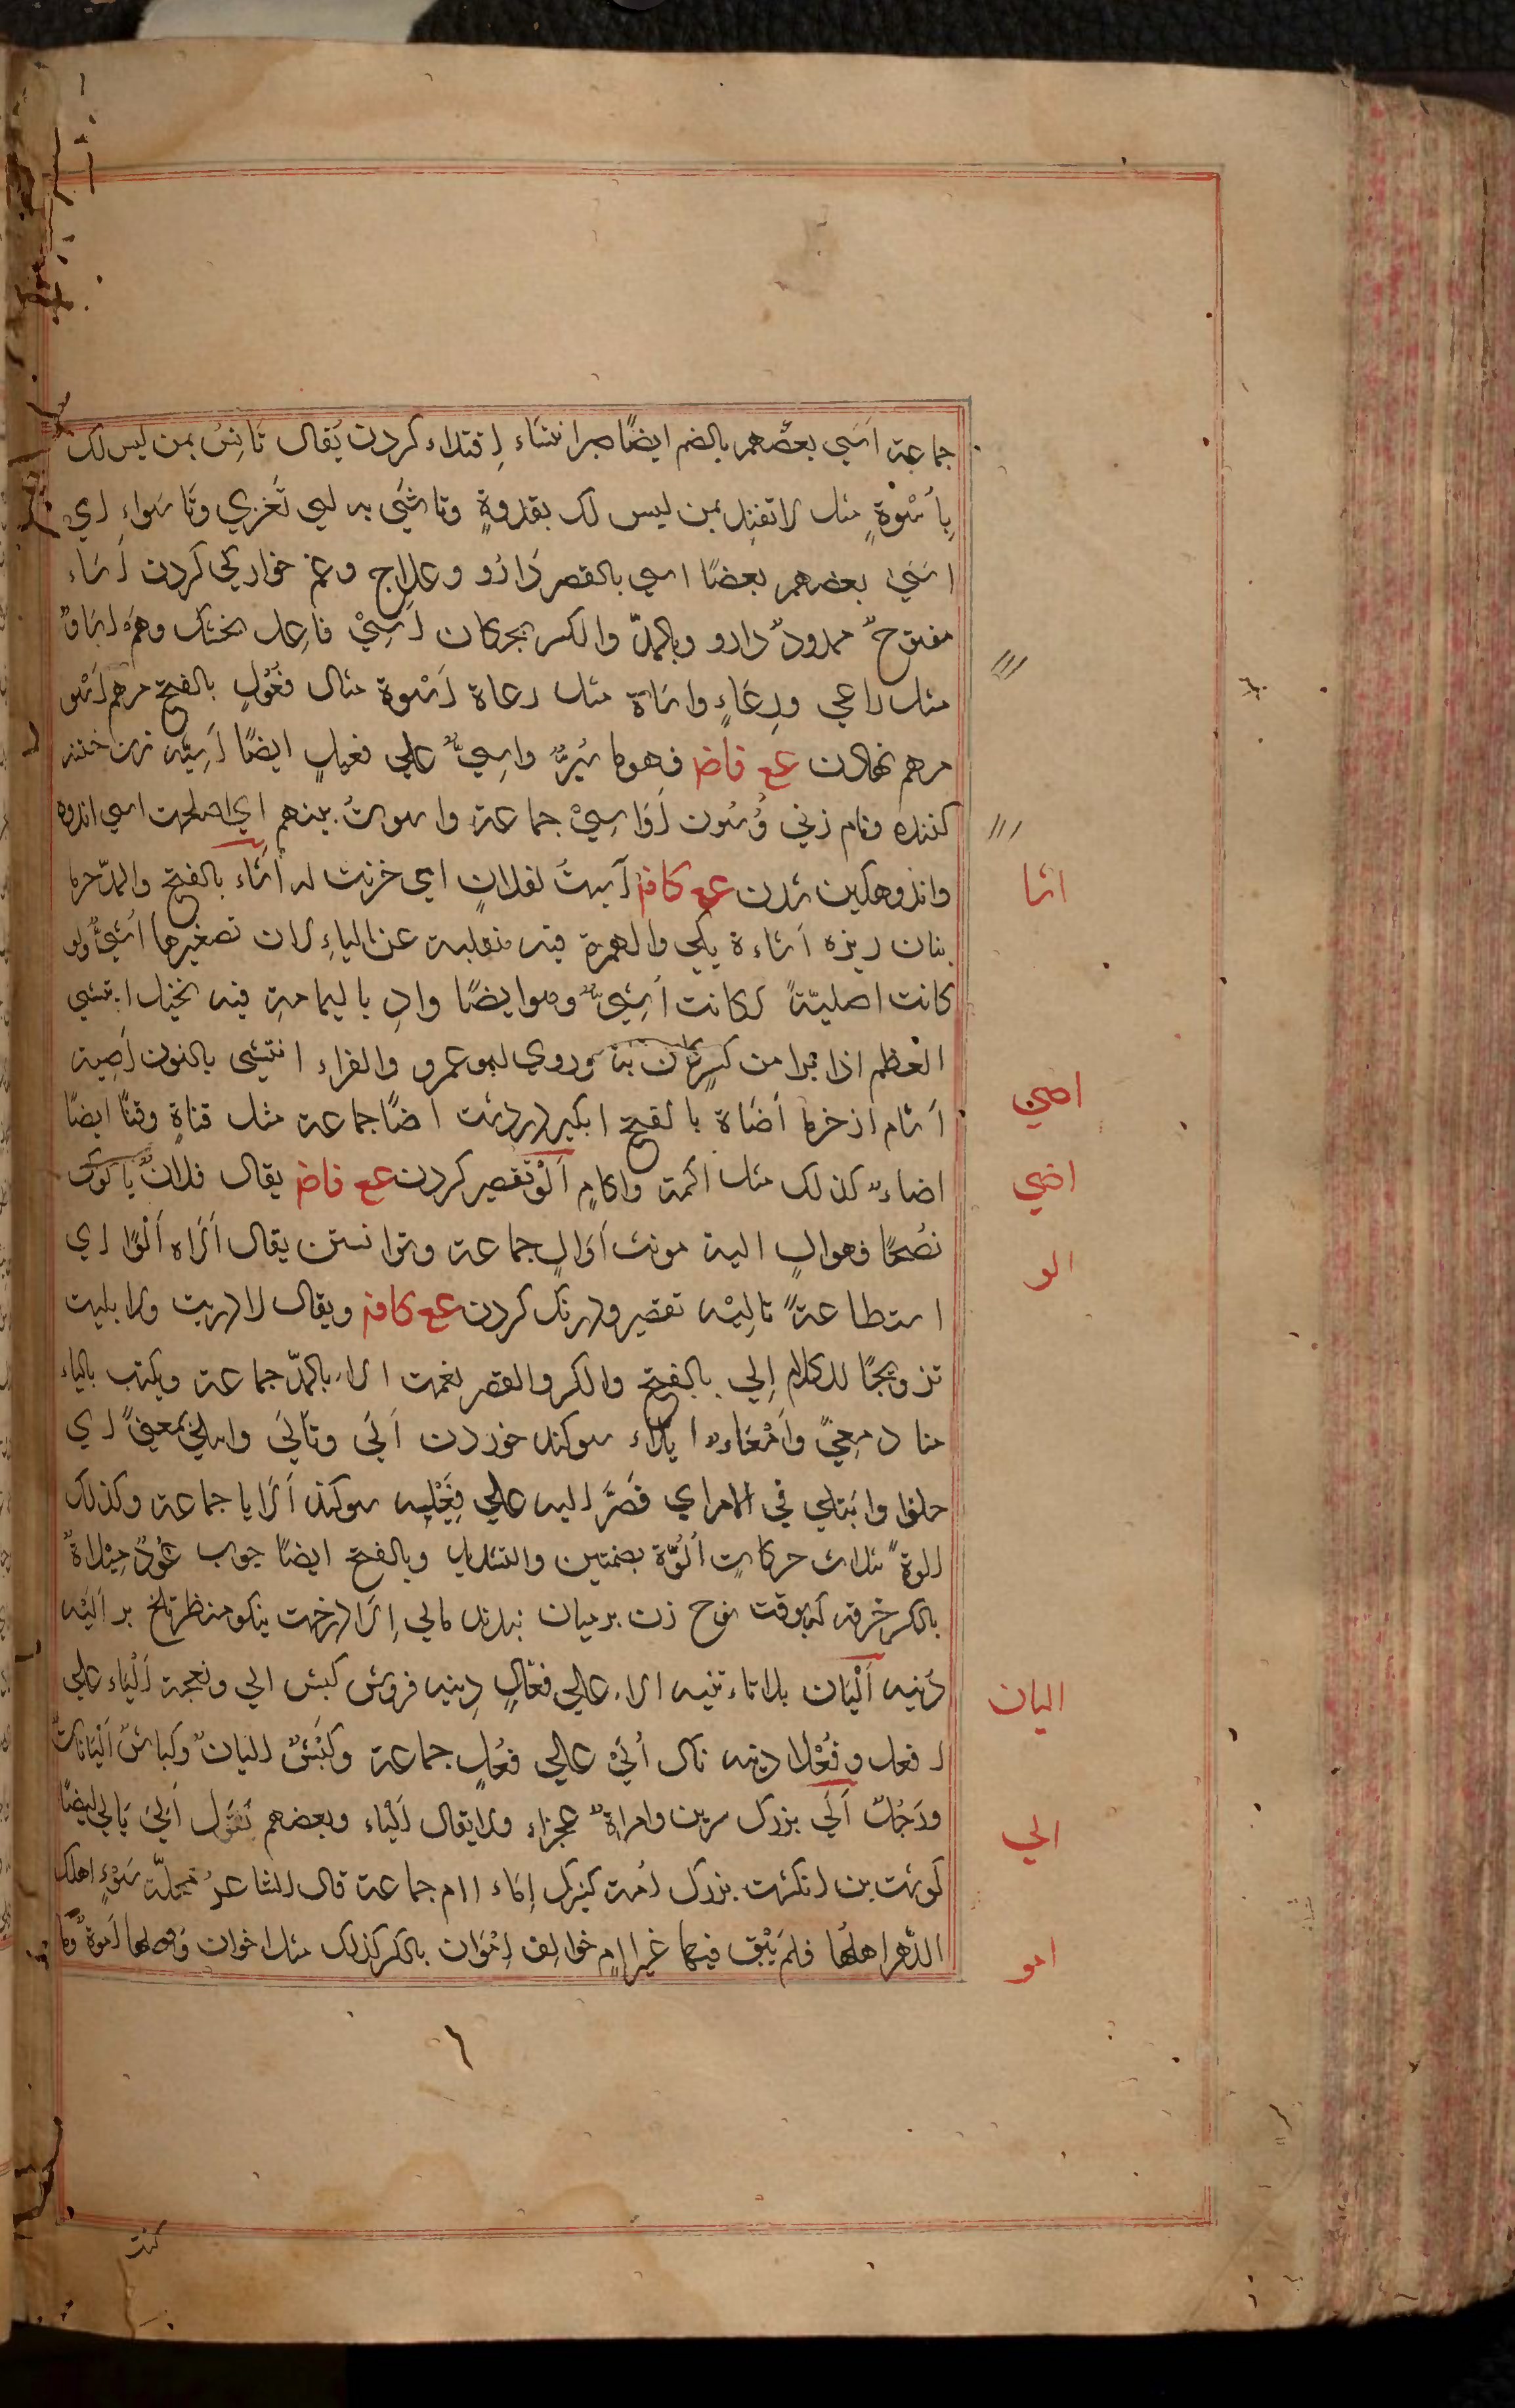 جماعة اسَي بعضهم بالضم ايضًا صبر ائتساء اِقتداء كردن يُقال تَاتسِ بمن ليس لك
بِاُسْوةٍ مثل لا تقتد بمن ليس لك بقدوةٍ وتاسّي به اي تعزي وتَاسَوا اي
اسَي بعضهم بعضًا اسي بالقصر دارُو وعلاج وغم خوارگي كردن اَساء
مفتوحٌ ممدودٌ دارو وبالمدّ والكسر بجركان اَسِيْ فاعِل پختك وهم اُساةٌ
مثل راعي ورِعَاءٍ واساة مثل رعاة اَسْوة مثال فَعُولٍ بالفتح مرهم اَسْو
مرهم نهادن ع ع فاض فهو ماسُوٌّ واسِيٌّ علي فعيلٍ ايضًا اَسِيّه زن ختنه
كننده ونام زني وُسُون اَوَاسِيْ جماعة واسوتُ بينهم اي اصلحت اسي اندوه
واندوهگين شدن ع ع كاف اَسيتُ لفلانٍ اي حزنت له اَشَاء بالفتح والمدّ خرما
بنان ريزه اَشاءة يكي والهمزة فيه منقلبة عن الياءِ لان تصغيرها اُشَيٌّ ولو
كانت اصليّةً لكانت اُشَيءٌ وهو ايضًا وادٍ باليمامةِ فيه نخيل ائتشي
العظم اذا برا من كسر كان به وروي ابو عمرو والفراء انتشي بالنون اَصِية
اَشام از خرما اَضَاة بالفتح ابگير در دشت اضًا جماعة مثل قناةٍ وقنًا ايضًا
اضاءٌ كذلك مثل اكمة واكامٍ اَلْو تقصير كردن ع ع فاض يقال فلانٌ لا يالوك
نُصْحًا فهو الٍ الية مونث اَوَالٍ جماعة وتوانستن يقال اَلَاه اَلْوًا اي
استطاعةً تالِيْه تقصير ودرنگ كردن ع ع كاف ويقال لا دريت ولا ابليت
تزويجًا للكلام اِلي بالفتح والكسر والقصر نعمت الاء بالمدّ جماعة ويكتب بالياء
منا د مِعِيً وَاَمْعَاءٌ ايلاء سوگند خوردن اَلَي وتاَلَّي وايتلي بمعنيً اي
حلفوا وائتلي في الامر اي قصَّر اليه علي فَعِيْلِه سوگند اَلايا جماعة وكذلك
الوةً ثلاث حركاتٍ اُلُوَّة بضمتين والتشديد وبالفتح ايضًا چوب عُوْدٌ مِئلاةٌ
بالكسر خرقه كه بوقت نوح زن بر ميان بندند مالي اِلَا درخت نيكو منظر تلخ بر اَليه
دُنبه اَليَان بلا تاء تثنيه الاء علي فعّالٍ دنبه فروش كبش الي ونعجة اَلياء علي
افعل وفَعْلاء دنبه ناك اُليٌ علي فعلٍ جماعة وكَبْشٌ اليانٌ وكباشٌ اَليانات
ورَجُلٌ اَلَي بزرگ سرين وامراةٌ عجزاء ولا يقال اَلياء وبعضهم تقول اَلِيَ يَالي ايضًا
گوشت بن انگشت بزرگ اَمة كنيزك اِماء اام جماعة قال الشاعرُ محلّة سَوْءٍ اهلك
الدّهر اهلها فلم يَبْقَ فيها غير اامٍ خوالِف اِمْوَان بالكسر كذلك مثل اخوان واصلها اَموةٌ وما
اشا
اصي
اضي
الو
اليان
الي
امو
٦
كنت